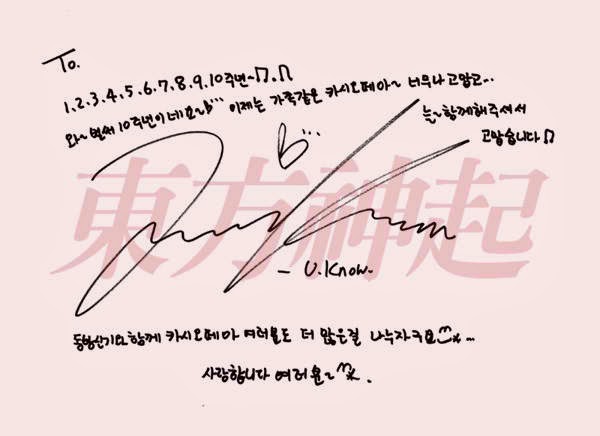 To.
1.2.3.4.5.6.7.8.9.10주년~♫.♫
와~ 벌써 10주년이네요~♪··· 이제는 가족같은 카시오페아~ 너무나 고맙고...
늘~함께해주셔서
고맙습니다♫
東方神起
- U.Know.
동방신기와 함께 카시오페아 여러분도 더 많은걸 나누자구요^^*...
사랑합니다 여러분~^^*.